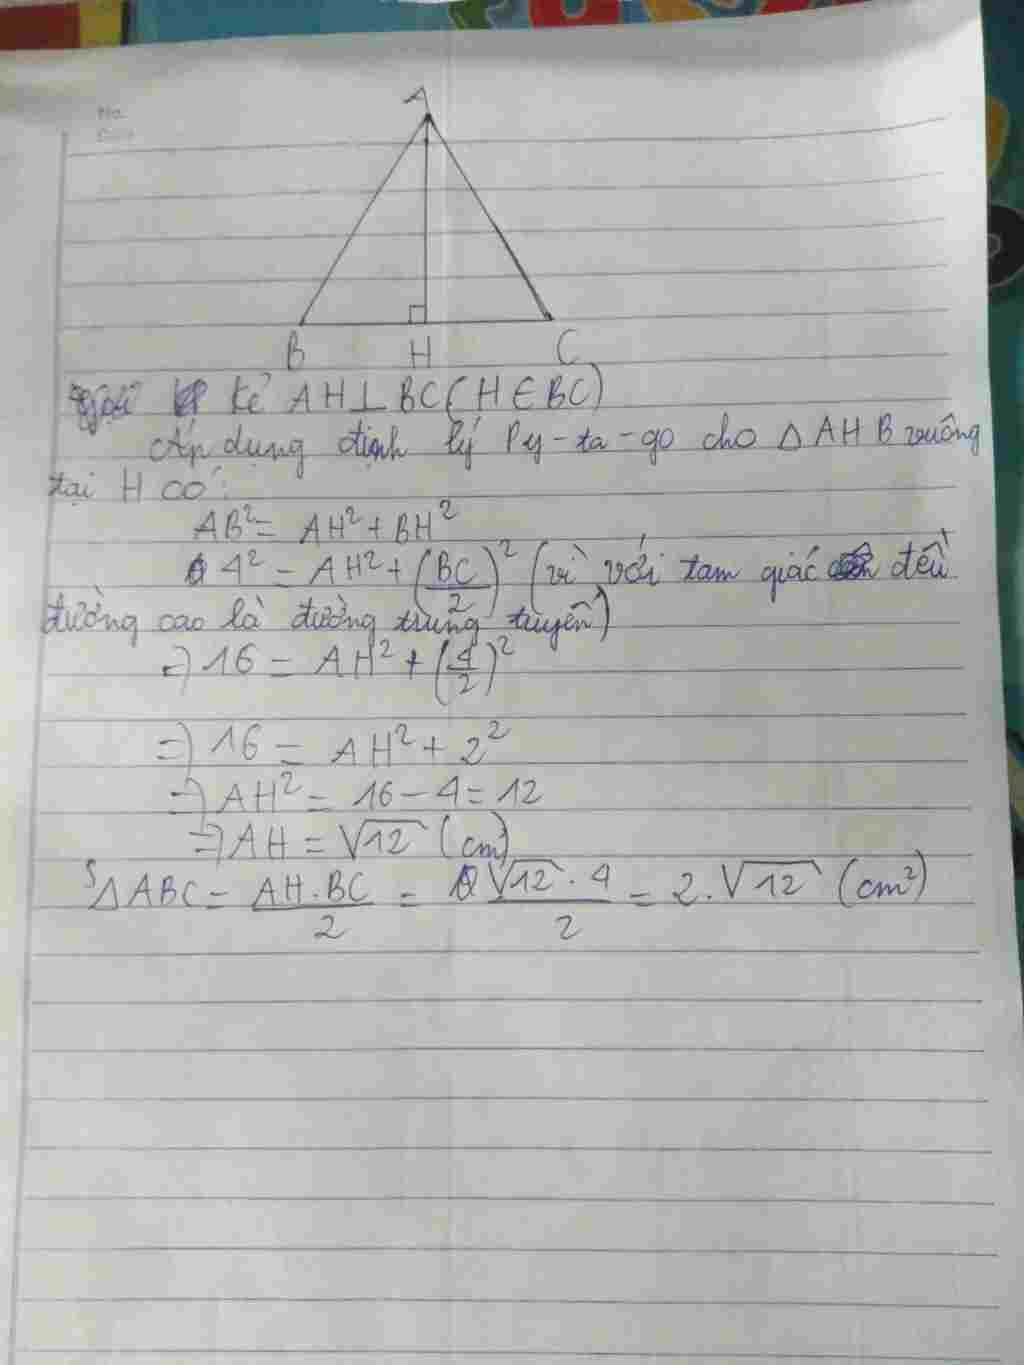 No.
Date
A
B H C
Kẻ AH⊥BC(H∈BC)
Áp dụng định lý Py-ta-go cho ΔAHB vuông
tại H có:
AB² = AH² + BH²
4² = AH² + (BC/2)² (vì với tam giác đều
đường cao là đường trung tuyến)
=> 16 = AH² + (4/2)²
=> 16 = AH² + 2²
=> AH² = 16 - 4 = 12
=> AH = √12 (cm)
SΔABC = AH.BC/2 = √12.4/2 = 2.√12 (cm²)